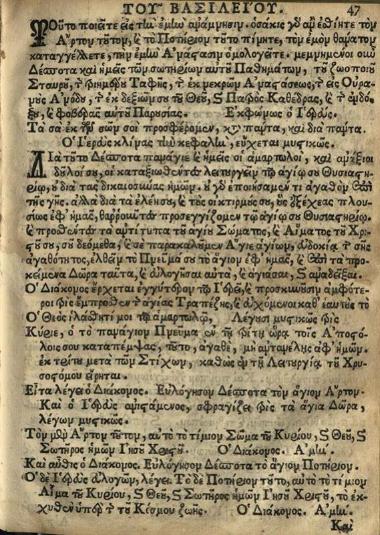 ΤΟΥ ΒΑΣΙΛΕΙΟΥ. 47
Τοῦτο ποιεῖτε εἰς τὴν ἐμὴν ἀνάμνησιν. ὁσάκις γὰρ ἂν ἐσθίητε τὸν
Ἄρτον τοῦτον, καὶ τὸ Ποτήριον τοῦτο πίνητε, τὸν ἐμὸν θάνατον
καταγγέλλετε, τὴν ἐμὴν Ἀνάστασιν ὁμολογεῖτε. μεμνημένοι οὖν
Δέσποτα καὶ ἡμεῖς τῶν σωτηρίων αὐτοῦ Παθημάτων, τοῦ ζωοποιοῦ
Σταυροῦ, τῆς τριημέρου Ταφῆς, τῆς ἐκ νεκρῶν Ἀναστάσεως, τῆς εἰς Οὐρα-
νοὺς Ἀνόδου, τῆς ἐκ δεξιῶν σοῦ τοῦ Θεοῦ, καὶ Πατρὸς Καθέδρας, καὶ τῆς ἐνδό-
ξου, καὶ φοβερᾶς αὐτοῦ Παρουσίας. Ἐκφώνως ὁ Ἱερεύς.
Τὰ σὰ ἐκ τῶν σῶν σοὶ προσφέρομεν, κατὰ πάντα, καὶ διὰ πάντα.
Ὁ Ἱερεὺς κλίνας τὴν κεφαλὴν, εὔχεται μυστικῶς.
Διὰ τοῦτο Δέσποτα πανάγιε καὶ ἡμεῖς οἱ ἁμαρτωλοὶ, καὶ ἀνάξιοι
δοῦλοί σου, οἱ καταξιωθέντες λειτουργεῖν τῷ ἁγίῳ σου Θυσιαστη-
ρίῳ, οὐ διὰ τὰς δικαιοσύνας ἡμῶν. οὐ γὰρ ἐποιήσαμέν τι ἀγαθὸν ἐπὶ
τῆς γῆς. ἀλλὰ διὰ τὰ ἐλέη σου, καὶ τοὺς οἰκτιρμούς σου, οὓς ἐξέχεας πλου-
σίως ἐφ' ἡμᾶς, θαῤῥοῦντες προσεγγίζομεν τῷ ἁγίῳ σου Θυσιαστηρίῳ.
καὶ προθέντες τὰ ἀντίτυπα τοῦ ἁγίου Σώματος, καὶ Αἵματος τοῦ Χρι-
στοῦ σου, σοῦ δεόμεθα, καὶ σὲ παρακαλοῦμεν Ἅγιε ἁγίων, εὐδοκίᾳ τῆς σῆς
ἀγαθότητος, ἐλθεῖν τὸ Πνεῦμά σου τὸ ἅγιον ἐφ' ἡμᾶς, καὶ ἐπὶ τὰ προ-
κείμενα Δῶρα ταῦτα, καὶ εὐλογῆσαι αὐτὰ, καὶ ἁγιάσαι, καὶ ἀναδεῖξαι.
Ὁ Διάκονος ἔρχεται ἐγγύτερον τοῦ Ἱερέως, καὶ προσκυνοῦσιν ἀμφότε-
ροι τρὶς ἔμπροσθεν τῆς ἁγίας Τραπέζης, εὐχόμενοι καθ' ἑαυτοὺς τὸ
Ὁ Θεὸς ἱλάσθητί μοι τῷ ἁμαρτωλῷ, Λέγουσι μυστικῶς τρὶς
Κύριε, ὁ τὸ πανάγιον Πνεῦμα ἐν τῇ τρίτῃ ὥρᾳ τοῖς Ἀποστό-
λοις σου καταπέμψας, τοῦτο, ἀγαθὲ, μὴ ἀντανέλῃς ἀφ' ἡμῶν.
ἐκ τρίτου μετὰ τῶν Στίχων, καθὼς ἐν τῇ Λειτουργίᾳ τοῦ Χρυ-
σοστόμου εἴρηται.
Εἶτα λέγει ὁ Διάκονος. Εὐλόγησον Δέσποτα τὸν ἅγιον Ἄρτον.
Καὶ ὁ Ἱερεὺς ἀνιστάμενος, σφραγίζει τρὶς τὰ ἅγια Δῶρα,
λέγων μυστικῶς.
Τὸν μὲν Ἄρτον τοῦτον, αὐτὸ τὸ τίμιον Σῶμα τοῦ Κυρίου, καὶ Θεοῦ, καὶ
Σωτῆρος ἡμῶν Ἰησοῦ Χριστοῦ. Ὁ Διάκονος. Ἀμήν.
Καὶ αὖθις ὁ Διάκονος. Εὐλόγησον Δέσποτα τὸ ἅγιον Ποτήριον.
Ὁ δὲ Ἱερεὺς εὐλογῶν, λέγει. Τὸ δὲ Ποτήριον τοῦτο, αὐτὸ τὸ τίμιον
Αἷμα τοῦ Κυρίου, καὶ Θεοῦ, καὶ Σωτῆρος ἡμῶν Ἰησοῦ Χριστοῦ, τὸ ἐκ-
χυθὲν ὑπὲρ τῆς τοῦ Κόσμου ζωῆς. Ὁ Διάκονος. Ἀμήν.
Καὶ